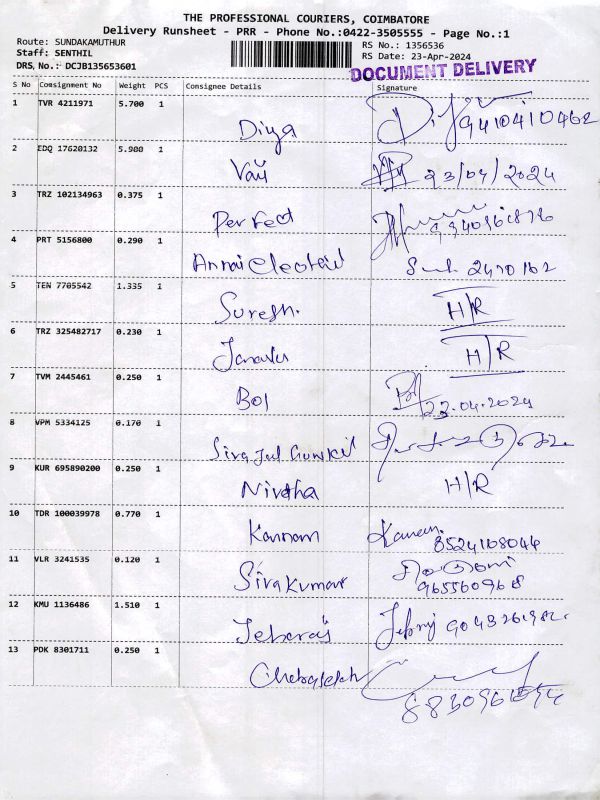 THE PROFESSIONAL COURIERS, COIMBATORE
Delivery Runsheet - PRR - Phone No.:0422-3505555 - Page No.:1
Route: SUNDAKAMUTHUR
Staff: SENTHIL
DRS, No.: DCJB135653601
RS No.: 1356536
RS Date: 23-Apr-2024
DOCUMENT DELIVERY
S No Consignment No Weight PCS Consignee Details Signature
1 TVR 4211971 5.700 1
Diya 9410410462
2 EDQ 17620132 5.900 1
23/04/2024
3 TRZ 102134963 0.375 1
Perfect
4 PRT 5156800 0.290 1
Annai 2470162
5 TEN 7705542 1.335 1
Suresh. H/R
6 TRZ 325482717 0.230 1
H/R
7 TVM 2445461 0.250 1
BOI 23.04.2024
8 VPM 5334125 0.170 1
9 KUR 695890200 0.250 1
Nivdha H/R
10 TDR 100039978 0.770 1
Kannan
8524108044
11 VLR 3241535 0.120 1
Sivakumar
9655609618
12 KMU 1136486 1.510 1
Jebaraj
13 PDK 8301711 0.250 1